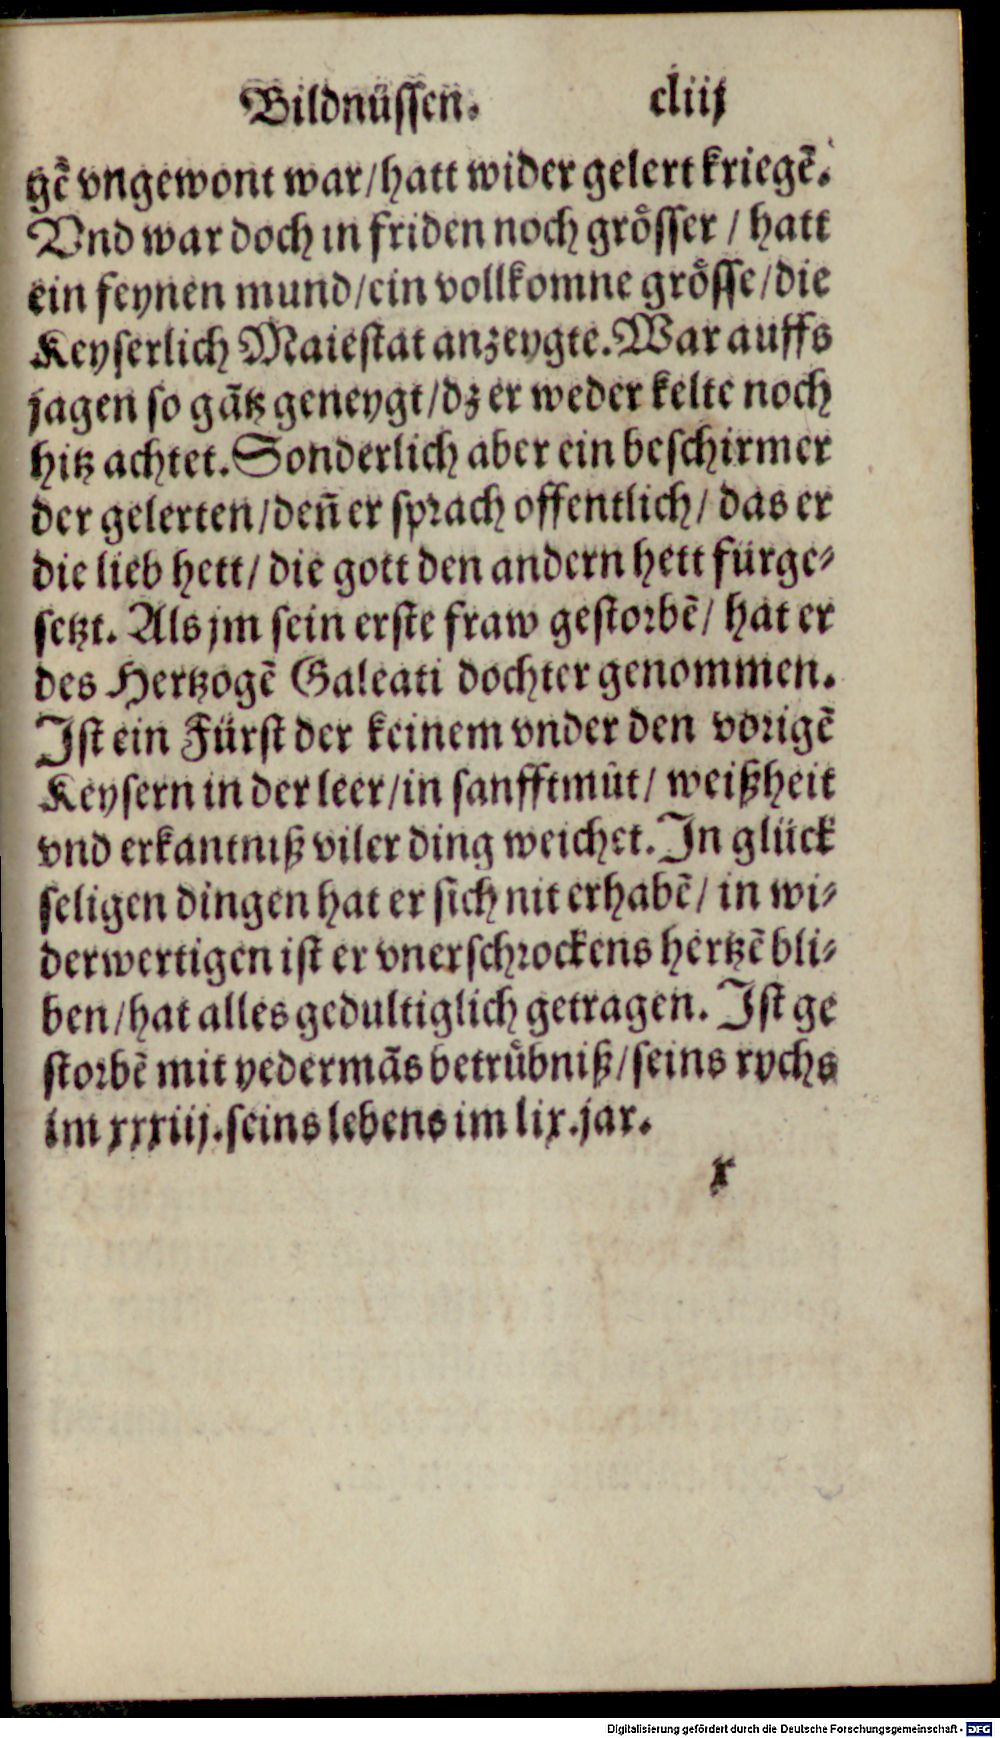 Bildnüssen. cliij
gē vngewont war/hatt wider gelert kriegē.
Vnd war doch in friden noch grösser / hatt
ein feynen mund/ein vollkomne grösse/die
Keyserlich Maiestat anzeygte. War auffs
jagen so gātz geneygt/dz er weder kelte noch
hitz achtet. Sonderlich aber ein beschirmer
der gelerten/deñ er sprach offentlich/ das er
die lieb hett/ die gott den andern hett fürge⸗
setzt. Als jm sein erste fraw gestorbē/ hat er
des Hertzogē Galeati dochter genommen.
Ist ein Fürst der keinem vnder den vorigē
Keysern in der leer/in sanfftmüt/ weißheit
vnd erkantniß viler ding weichet. In glück
seligen dingen hat er sich nit erhabē/ in wi⸗
derwertigen ist er vnerschrockens hertzē bli⸗
ben/hat alles gedultiglich getragen. Ist ge
storbē mit yedermās betrübniß/seins rychs
im xxxiij. seins lebens im lix. jar.
x
Digitalisierung gefördert durch die Deutsche Forschungsgemeinschaft - DFG